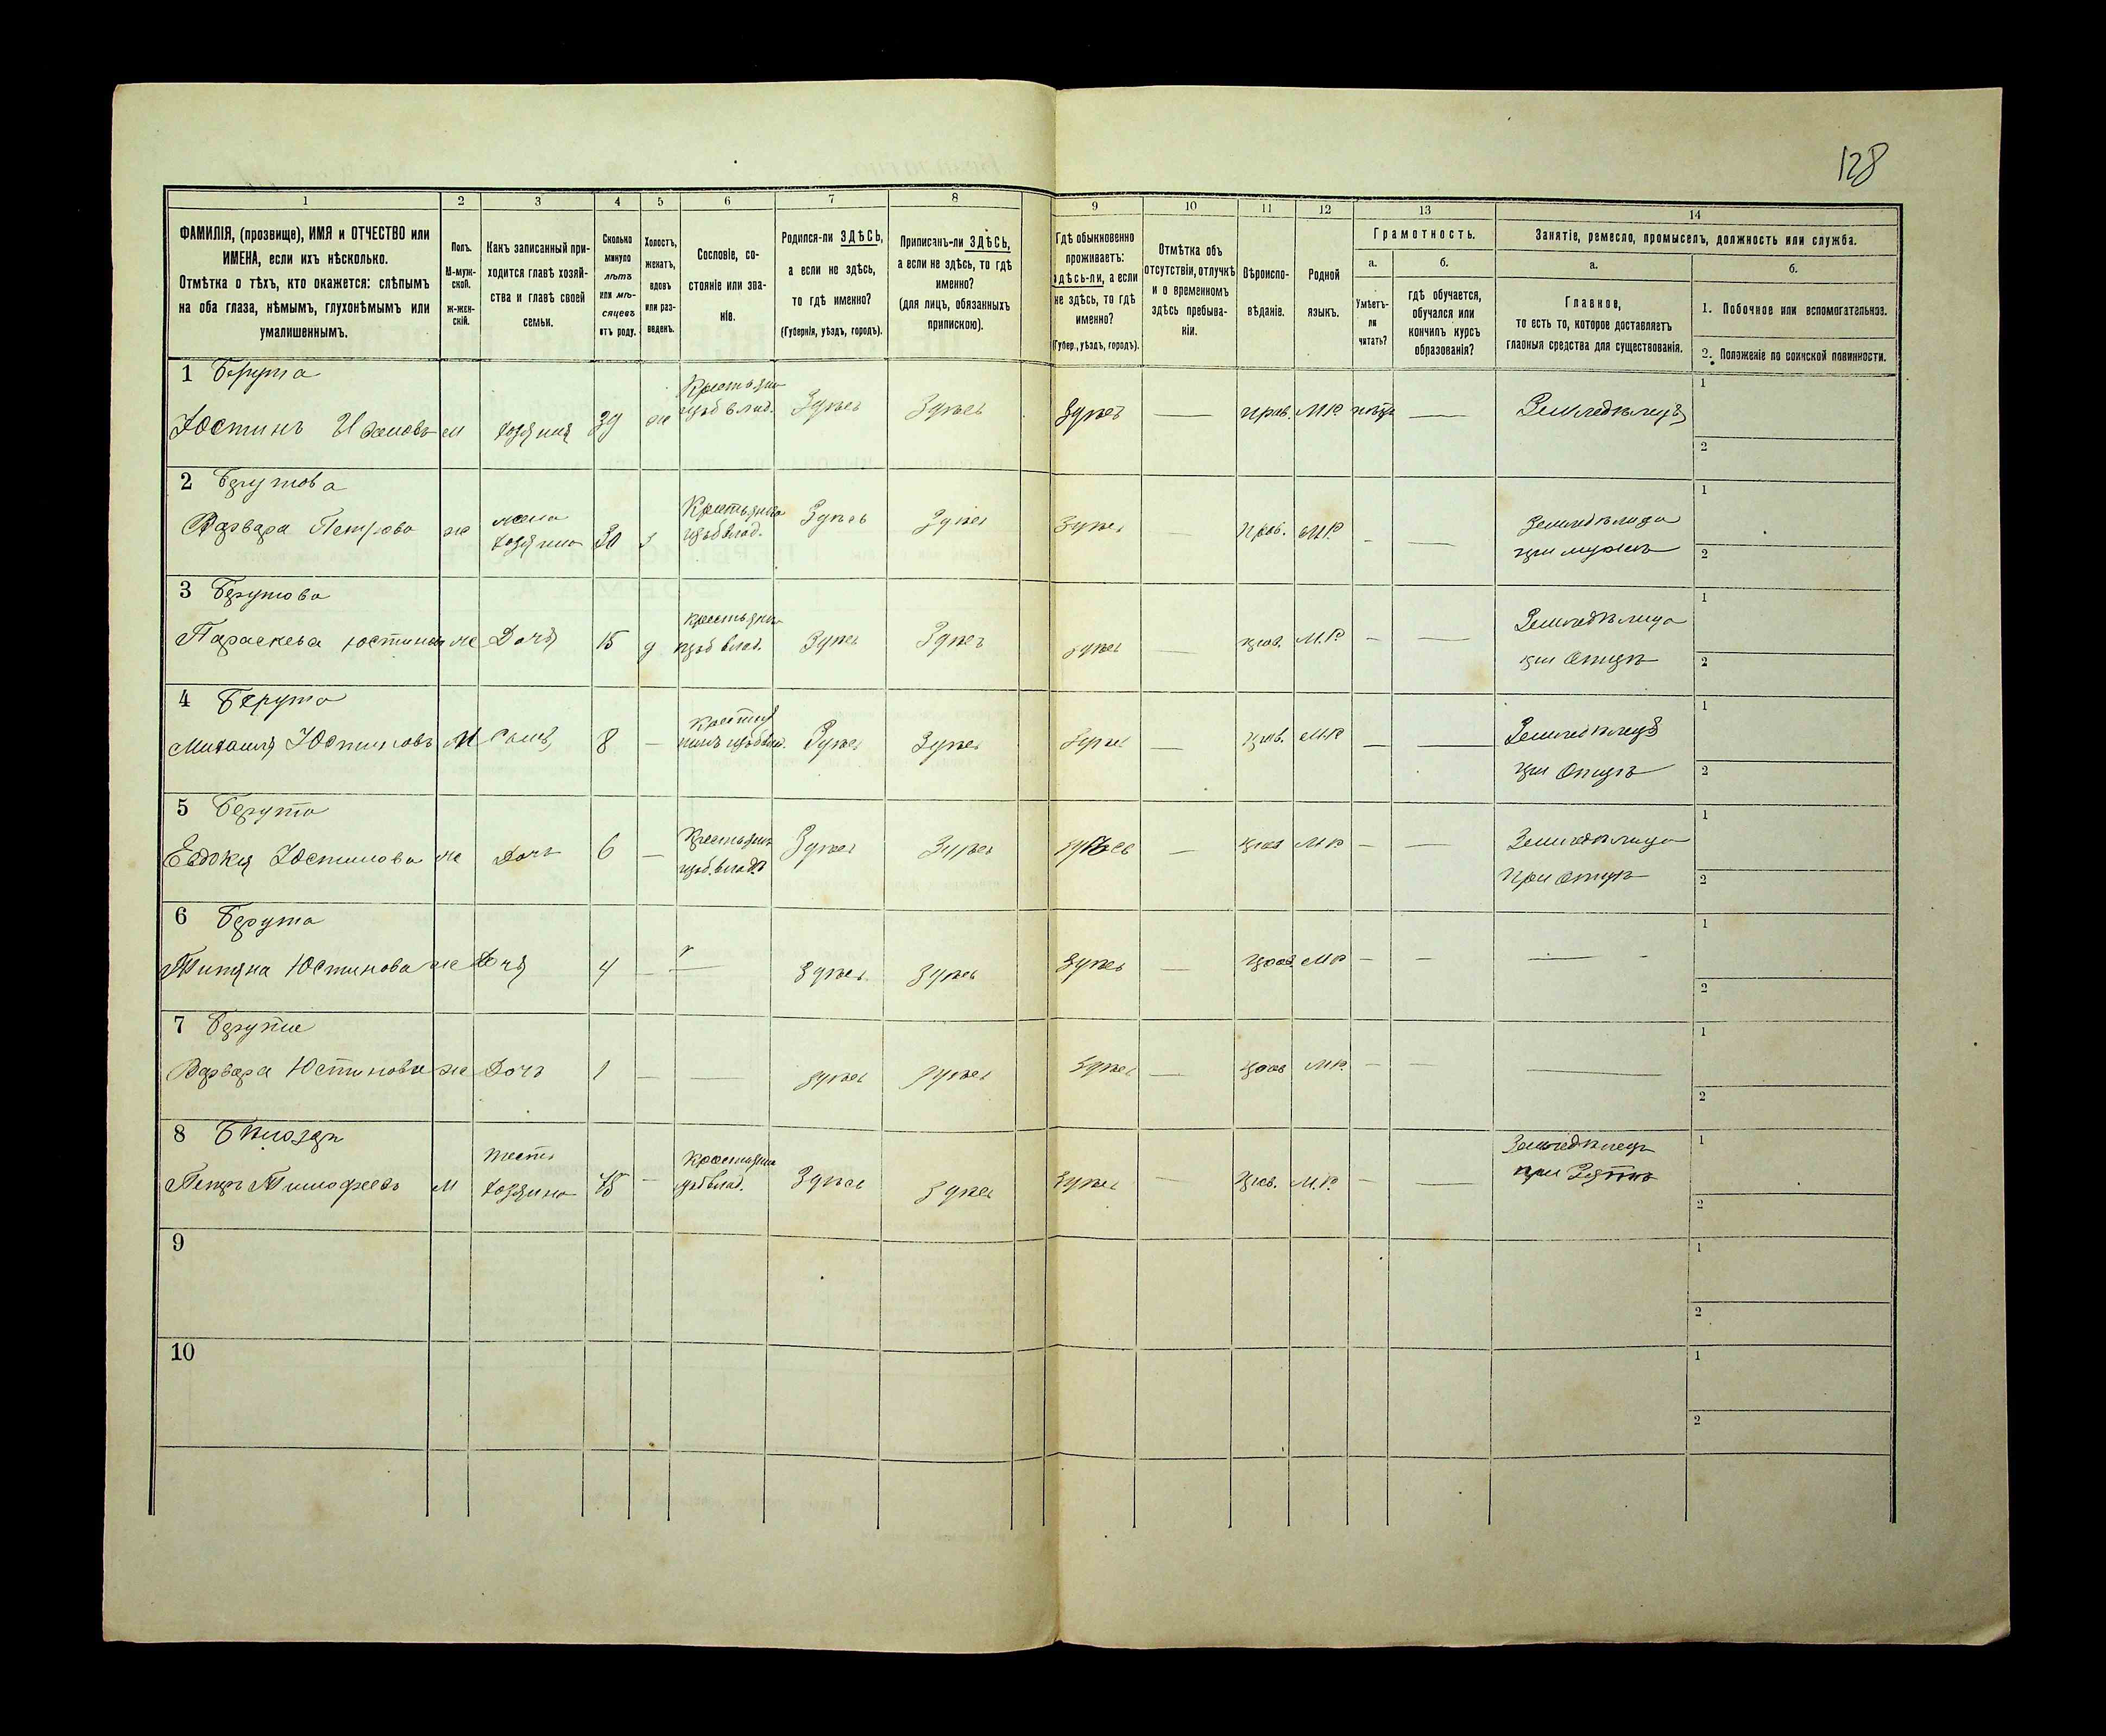 128
1 2 3 4 5 6 7 8 9 10 11 12 13 14
ФАМИЛІЯ, (прозвище), ИМЯ и ОТЧЕСТВО или
ИМЕНА, если ихъ нѣсколько.
Отмѣтка о тѣхъ, кто окажется: слѣпымъ
на оба глаза, нѣмымъ, глухонѣмымъ или
умалишеннымъ.
Полъ.
М-муж-
ской.
Ж-жен-
скій.
Какъ записанный при-
ходится главѣ хозяй-
ства и главѣ своей
семьи.
Сколько
минуло
лѣтъ
или мѣ-
сяцевъ
отъ роду.
Холостъ,
женатъ,
вдовъ
или раз-
веденъ.
Сословіе, со-
стояніе или зва-
ніе.
Родился-ли ЗДѢСЬ,
а если не здѣсь,
то гдѣ именно?
(Губернія, уѣздъ, городъ).
Приписанъ-ли ЗДѢСЬ,
а если не здѣсь, то гдѣ
именно?
(для лицъ, обязанныхъ
припискою).
Гдѣ обыкновенно
проживаетъ:
здѣсь-ли, а если
не здѣсь, то гдѣ
именно?
(Губер., уѣздъ, городъ).
Отмѣтка объ
отсутствіи, отлучкѣ
и о временномъ
здѣсь пребыва-
ніи.
Вѣроиспо-
вѣданіе.
Родной
языкъ.
Грамотность.
а.
Умѣетъ-
ли
читать?
б.
гдѣ обучается,
обучался или
кончилъ курсъ
образованія?
Занятіе, ремесло, промыселъ, должность или служба.
а.
Главное,
то есть то, которое доставляетъ
главныя средства для существованія.
б.
1. Побочное или вспомогательное.
2. Положеніе по воинской повинности.
1 Берута
Юстинъ Ивановъ м хозяинъ 39 ж Здѣсь Здѣсь Здѣсь — прав. М.Р. нѣтъ — Земледѣлецъ
1
2
2 Берутова
Варвара Петрова ж жена
хозяина 30 з Здѣсь Здѣсь Здѣсь — прав. М.Р. - — Земледѣлица
при мужѣ
1
2
3 Берутова
Параскева Юстинова ж Дочь 15 д Здѣсь Здѣсь Здѣсь — прав. М.Р. - — Земледѣлица
при Отцѣ
1
2
4 Берута
Михаилъ Юстиновъ М Сынъ 8 — Здѣсь Здѣсь Здѣсь — прав. М.Р — — Земледѣлецъ
при Отцѣ
1
2
5 Берута
Евдокія Юстинова ж Дочь 6 — Здѣсь Здѣсь здѣсь — прав М.Р — — Земледѣлица
При Отцѣ
1
2
6 Берута
Юстинова ж Дочь 4 — — Здѣсь Здѣсь Здѣсь — прав. М.Р — — —
1
2
7
Варвара Юстинова ж Дочь 1 — — здѣсь здѣсь здѣсь — прав М.Р. — — —
1
2
8
Петръ Тимофеевъ м тесть
хозяина — Здѣсь Здѣсь Здѣсь — прав. М.Р. — — Земледѣлецъ
при Зятѣ
1
2
9
1
2
10
1
2